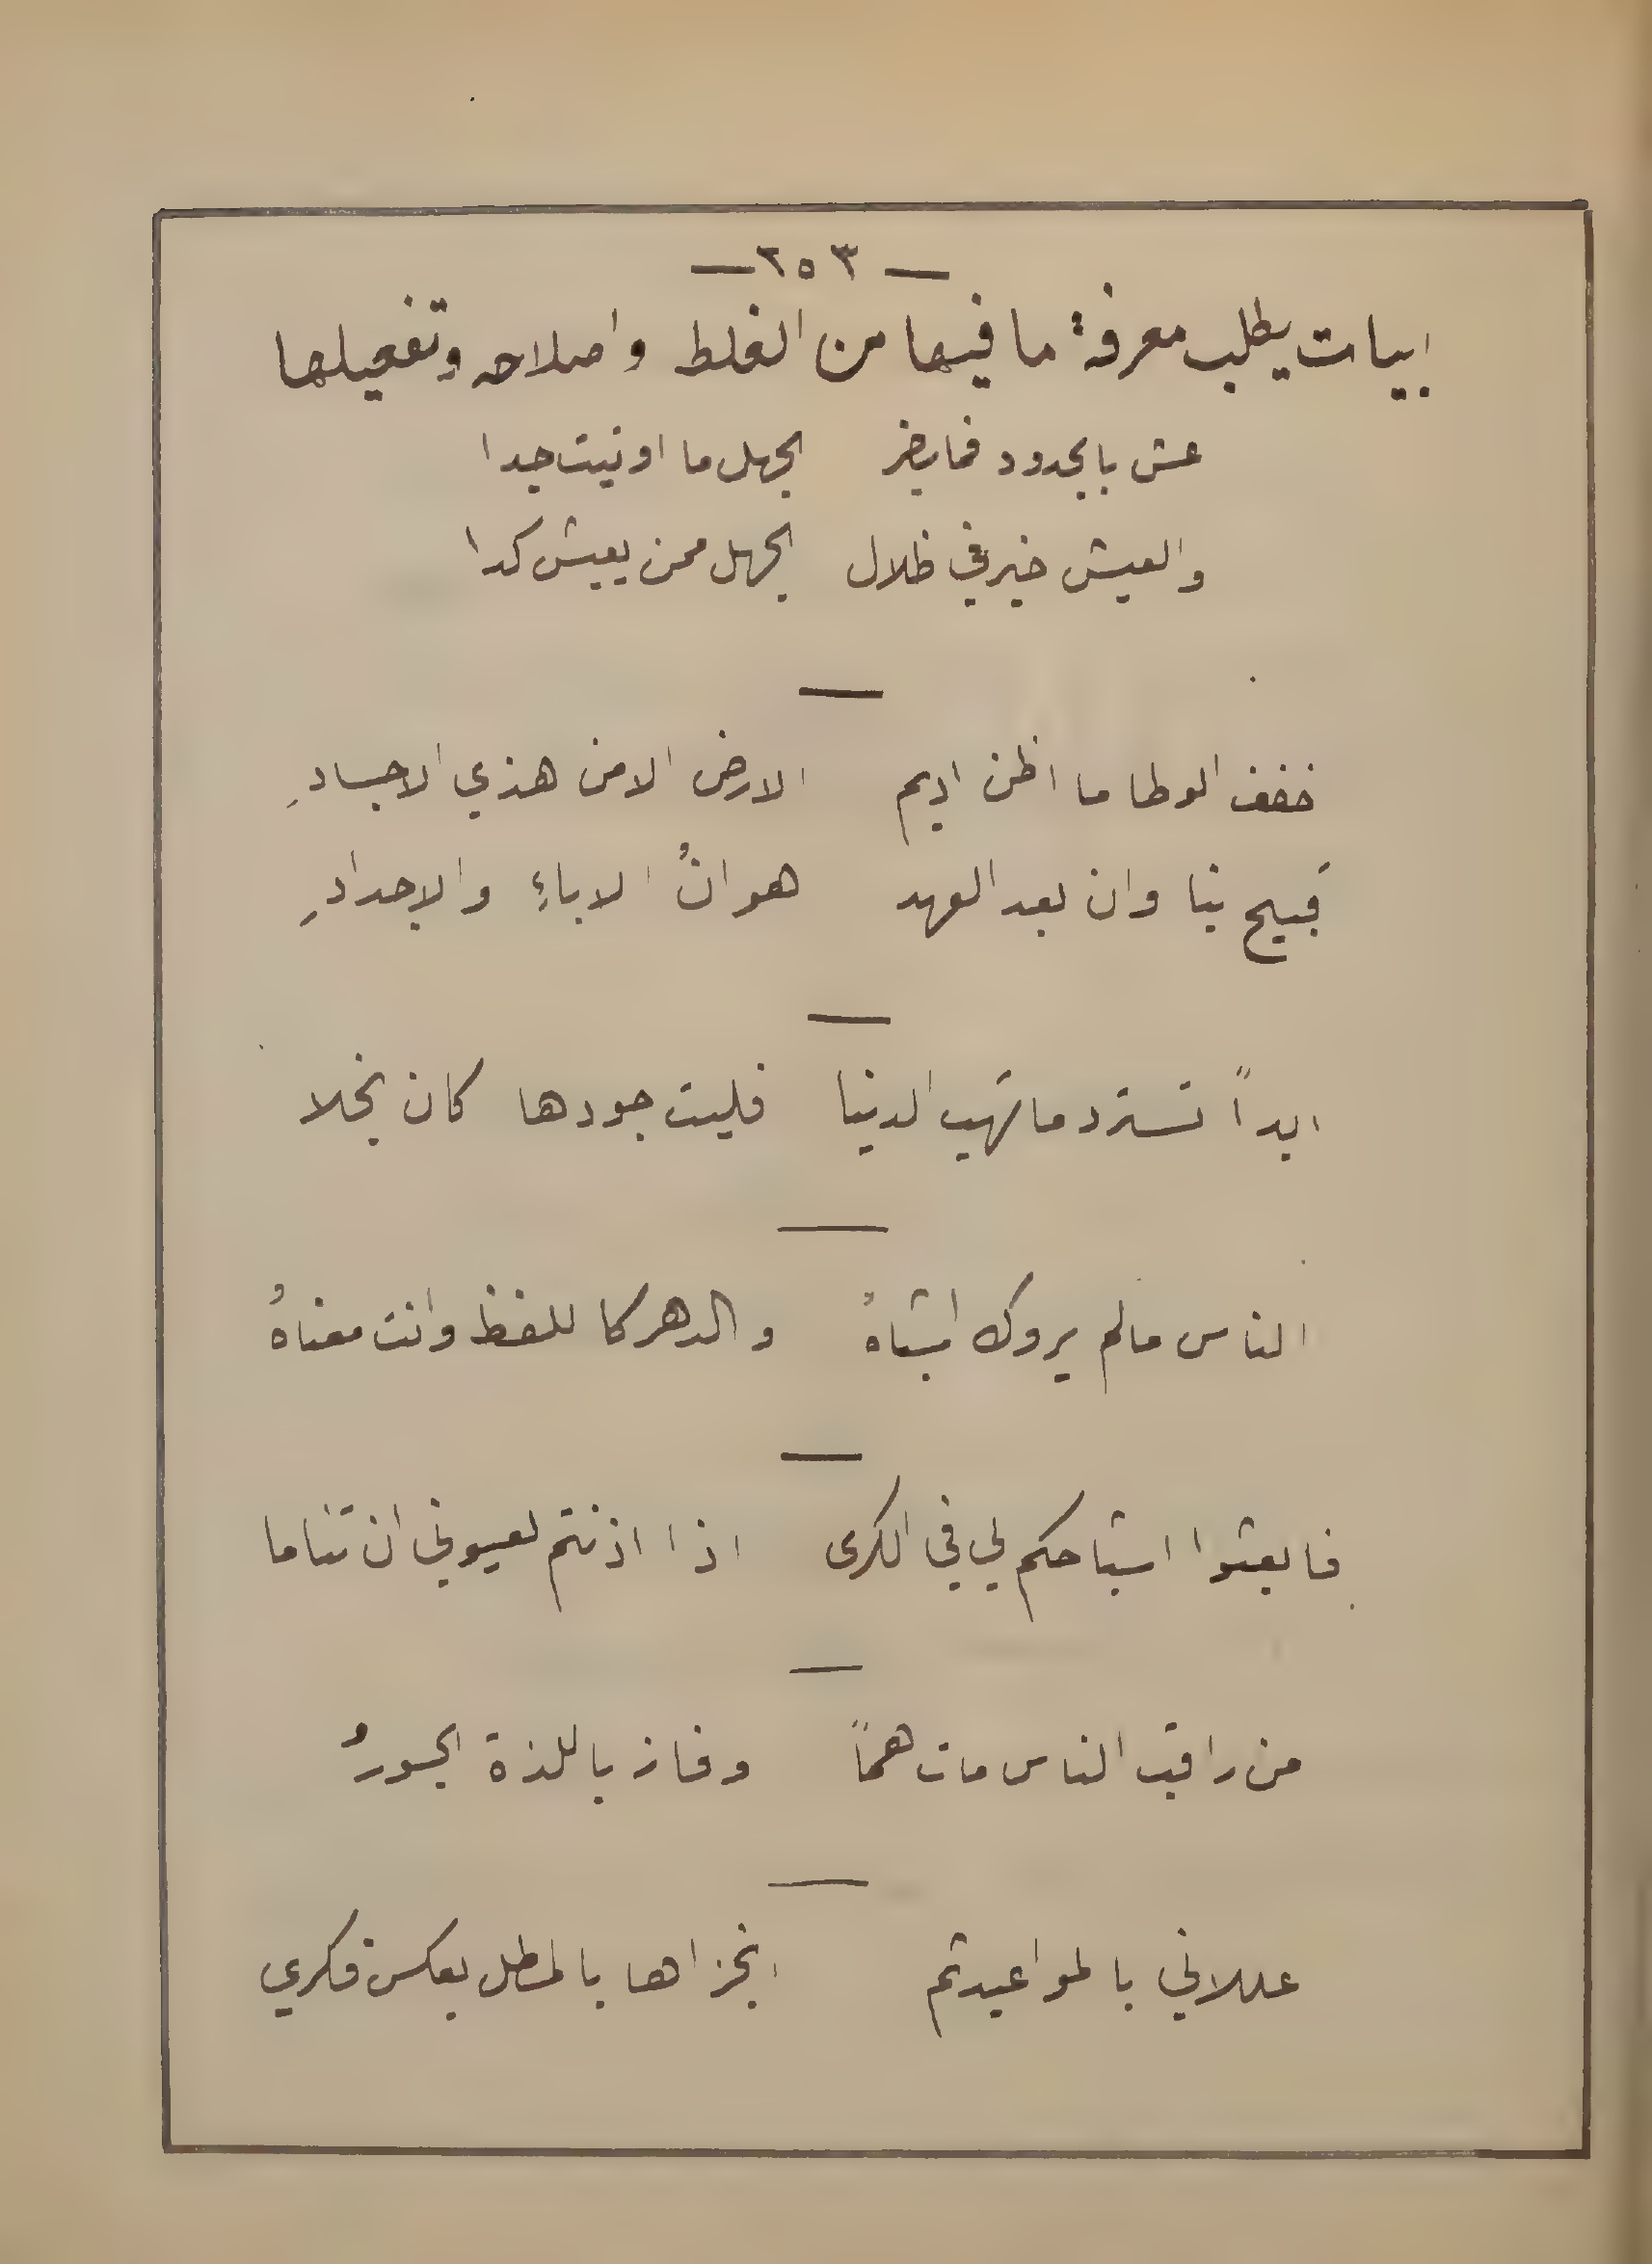 — ٢٥٣ —
ابيات يطلب معرفة ما فيها من الغلط واصلاحه وتفعيلها
عش بالجدود فما يضر الجهل ما اوتيت جدا
والعيش خير في ظلال الجهل ممن يعيش كدا
خفف الوطا ما اظن اديم الارض الا من هذي الاجسادِ
قبيح بنا وان بعد العهد هوانُ الاباءِ والاجدادِ
ابداً تسترد ما تهب الدنيا فليت جودها كان بخلا
الناس ما لم يروك اشباهُ والدهر كا للفظ وانت معناهُ
فابعثوا اشباحكم لي في الكرى اذا اذنتم لعيوني ان تناما
من راقب الناس مات هماً وفاز باللذة الجسورُ
عللاني بالمواعيد ثم انجزاها بالمطل بعكس فكري